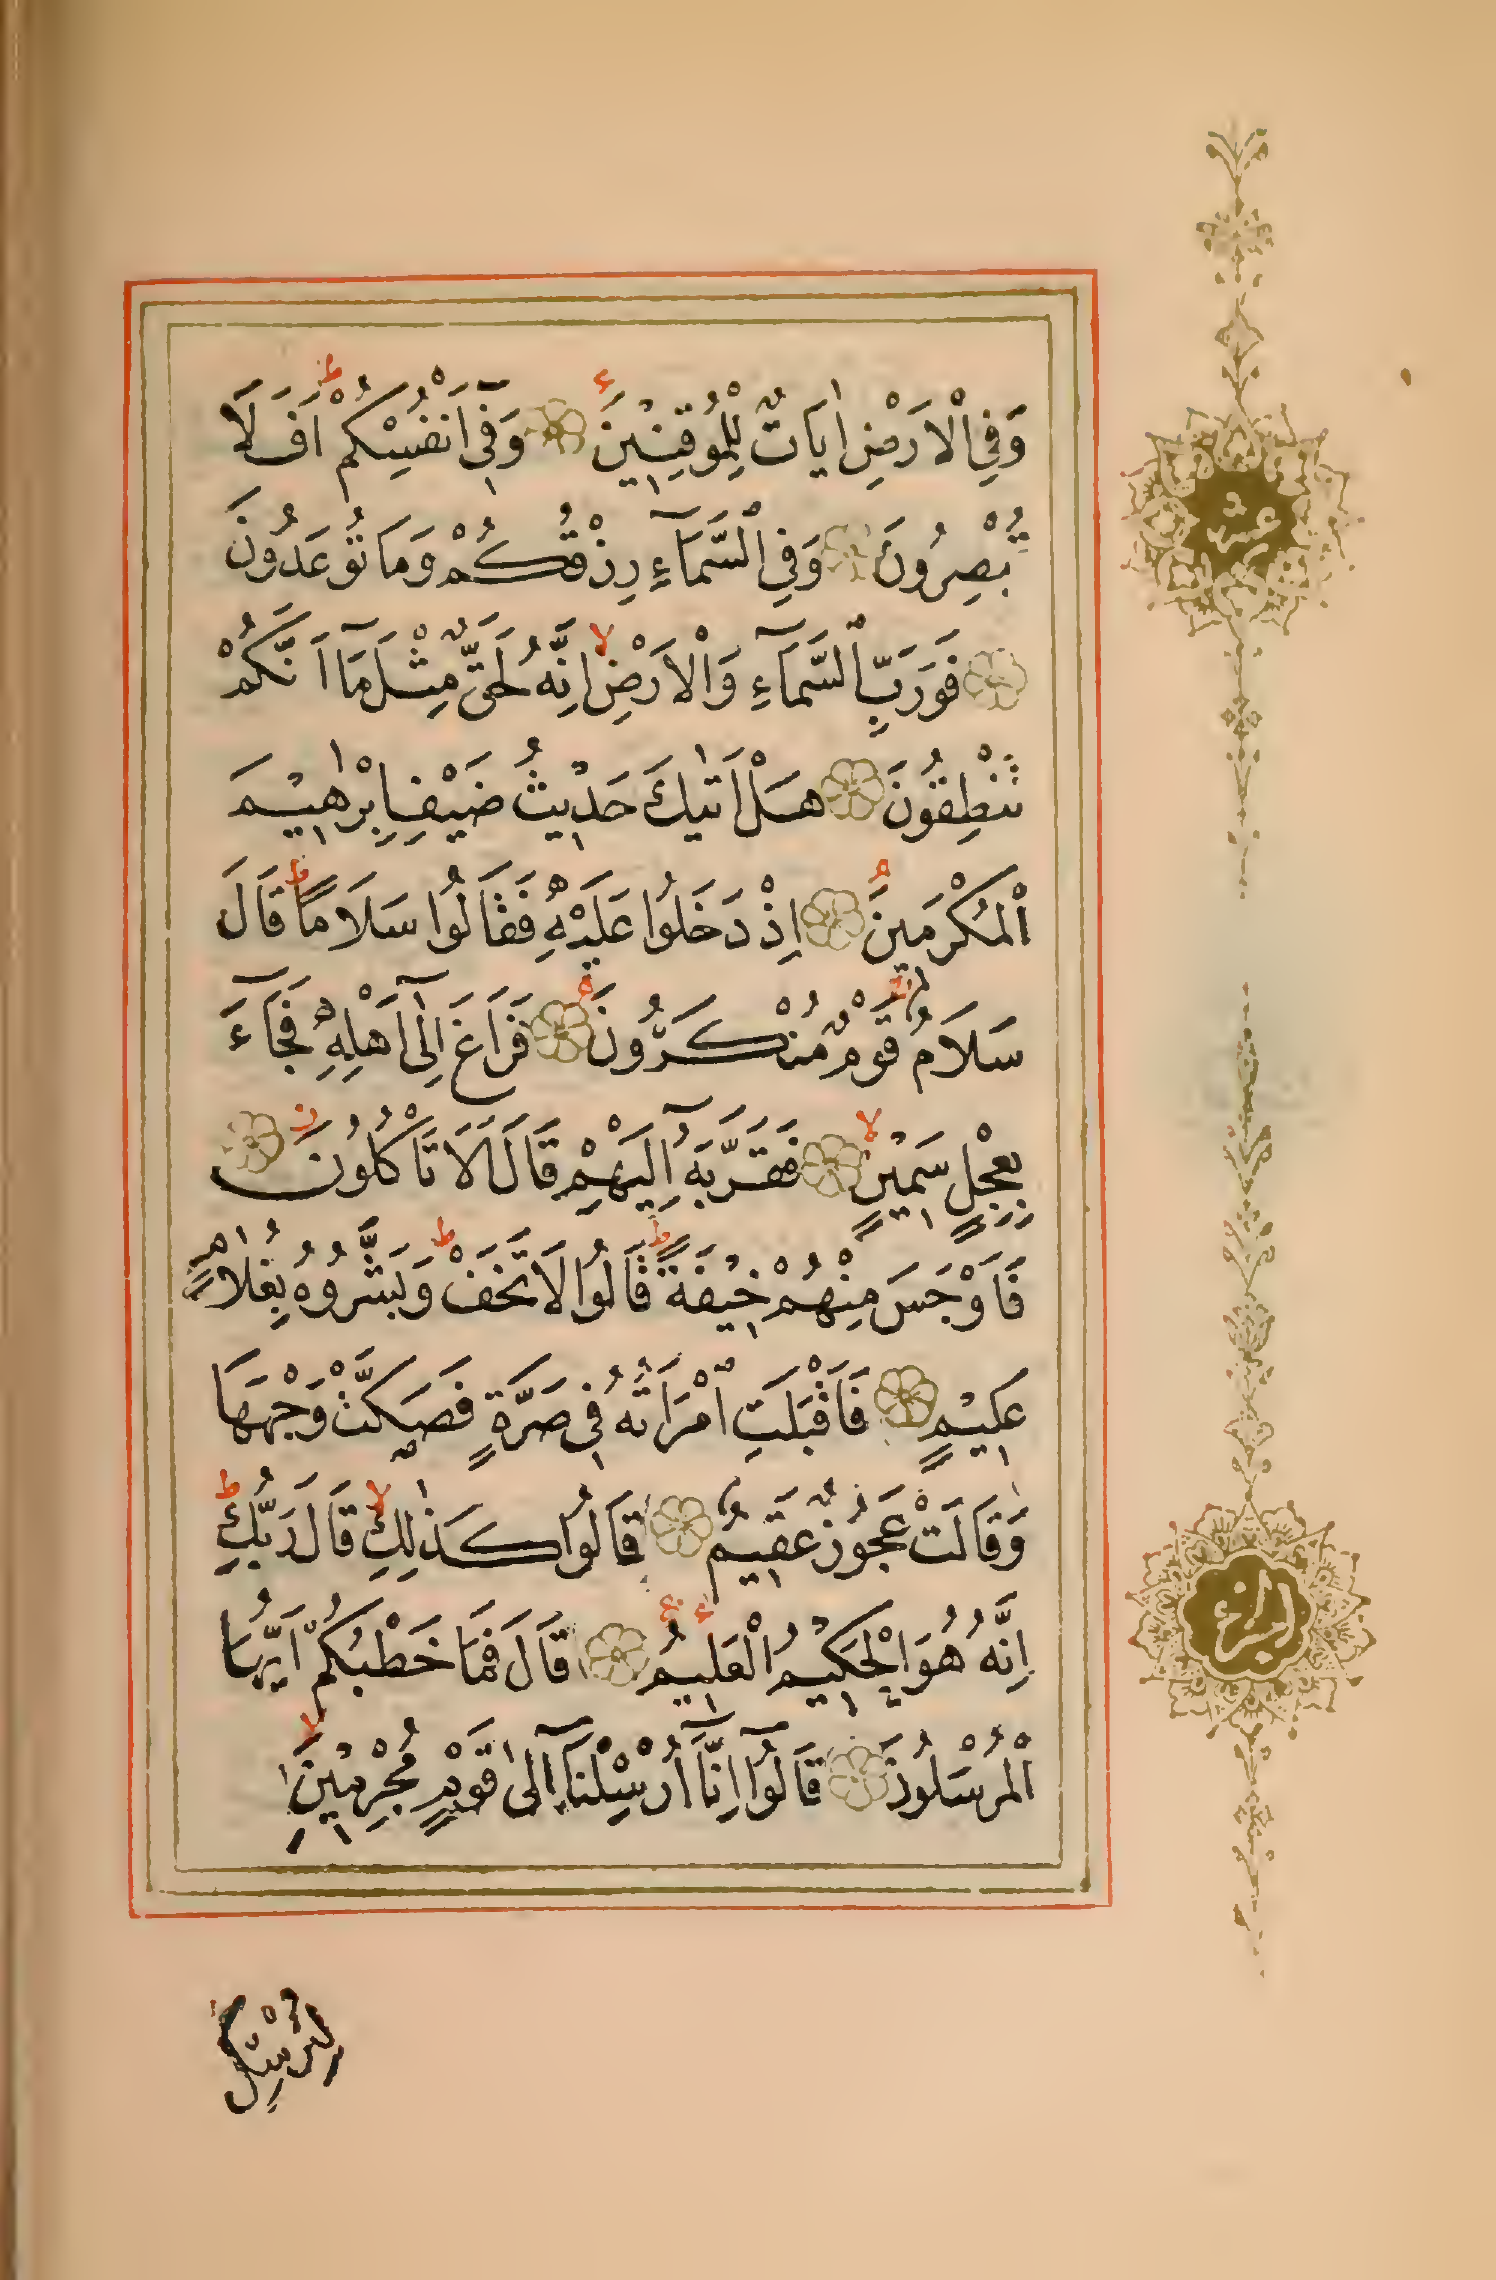 وَفِي الْاَرْضِ اٰيَاتٌ لِلْمُوقِنِينَ وَفِٓي اَنْفُسِكُمْ ط اَفَلَا
تُبْصِرُونَ وَفِي السَّمَٓاءِ رِزْقُكُمْ وَمَا تُوعَدُونَ
فَوَرَبِّ السَّمَٓاءِ وَالْاَرْضِ لا اِنَّهُ لَحَقٌّ مِثْلَ مَٓا اَنَّكُمْ
تَنْطِقُونَ هَلْ اَتٰيكَ حَدِيثُ ضَيْفِ اِبْرٰهِيمَ
الْمُكْرَمِينَ اِذْ دَخَلُوا عَلَيْهِ فَقَالُوا سَلَامًا ط قَالَ
سَلَامٌ قَوْمٌ مُنْكَرُونَ فَرَاغَ اِلٰٓى اَهْلِهِ فَجَٓاءَ
بِعِجْلٍ سَمِينٍ لا فَقَرَّبَهُٓ اِلَيْهِمْ قَالَ اَلَا تَأْكُلُونَ ز
فَاَوْجَسَ مِنْهُمْ خِيفَةً ط قَالُوا لَا تَخَفْ ط وَبَشَّرُوهُ بِغُلَامٍ
عَلِيمٍ فَاَقْبَلَتِ امْرَاَتُهُ فِي صَرَّةٍ فَصَكَّتْ وَجْهَهَا
وَقَالَتْ عَجُوزٌ عَقِيمٌ قَالُوا كَذٰلِكِ لا قَالَ رَبُّكِ ط
اِنَّهُ هُوَ الْحَكِيمُ الْعَلِيمُ قَالَ فَمَا خَطْبُكُمْ اَيُّهَا
الْمُرْسَلُونَ قَالُٓوا اِنَّٓا اُرْسِلْنَٓا اِلٰى قَوْمٍ مُجْرِمِينَ لا
لِنُرْسِلَ